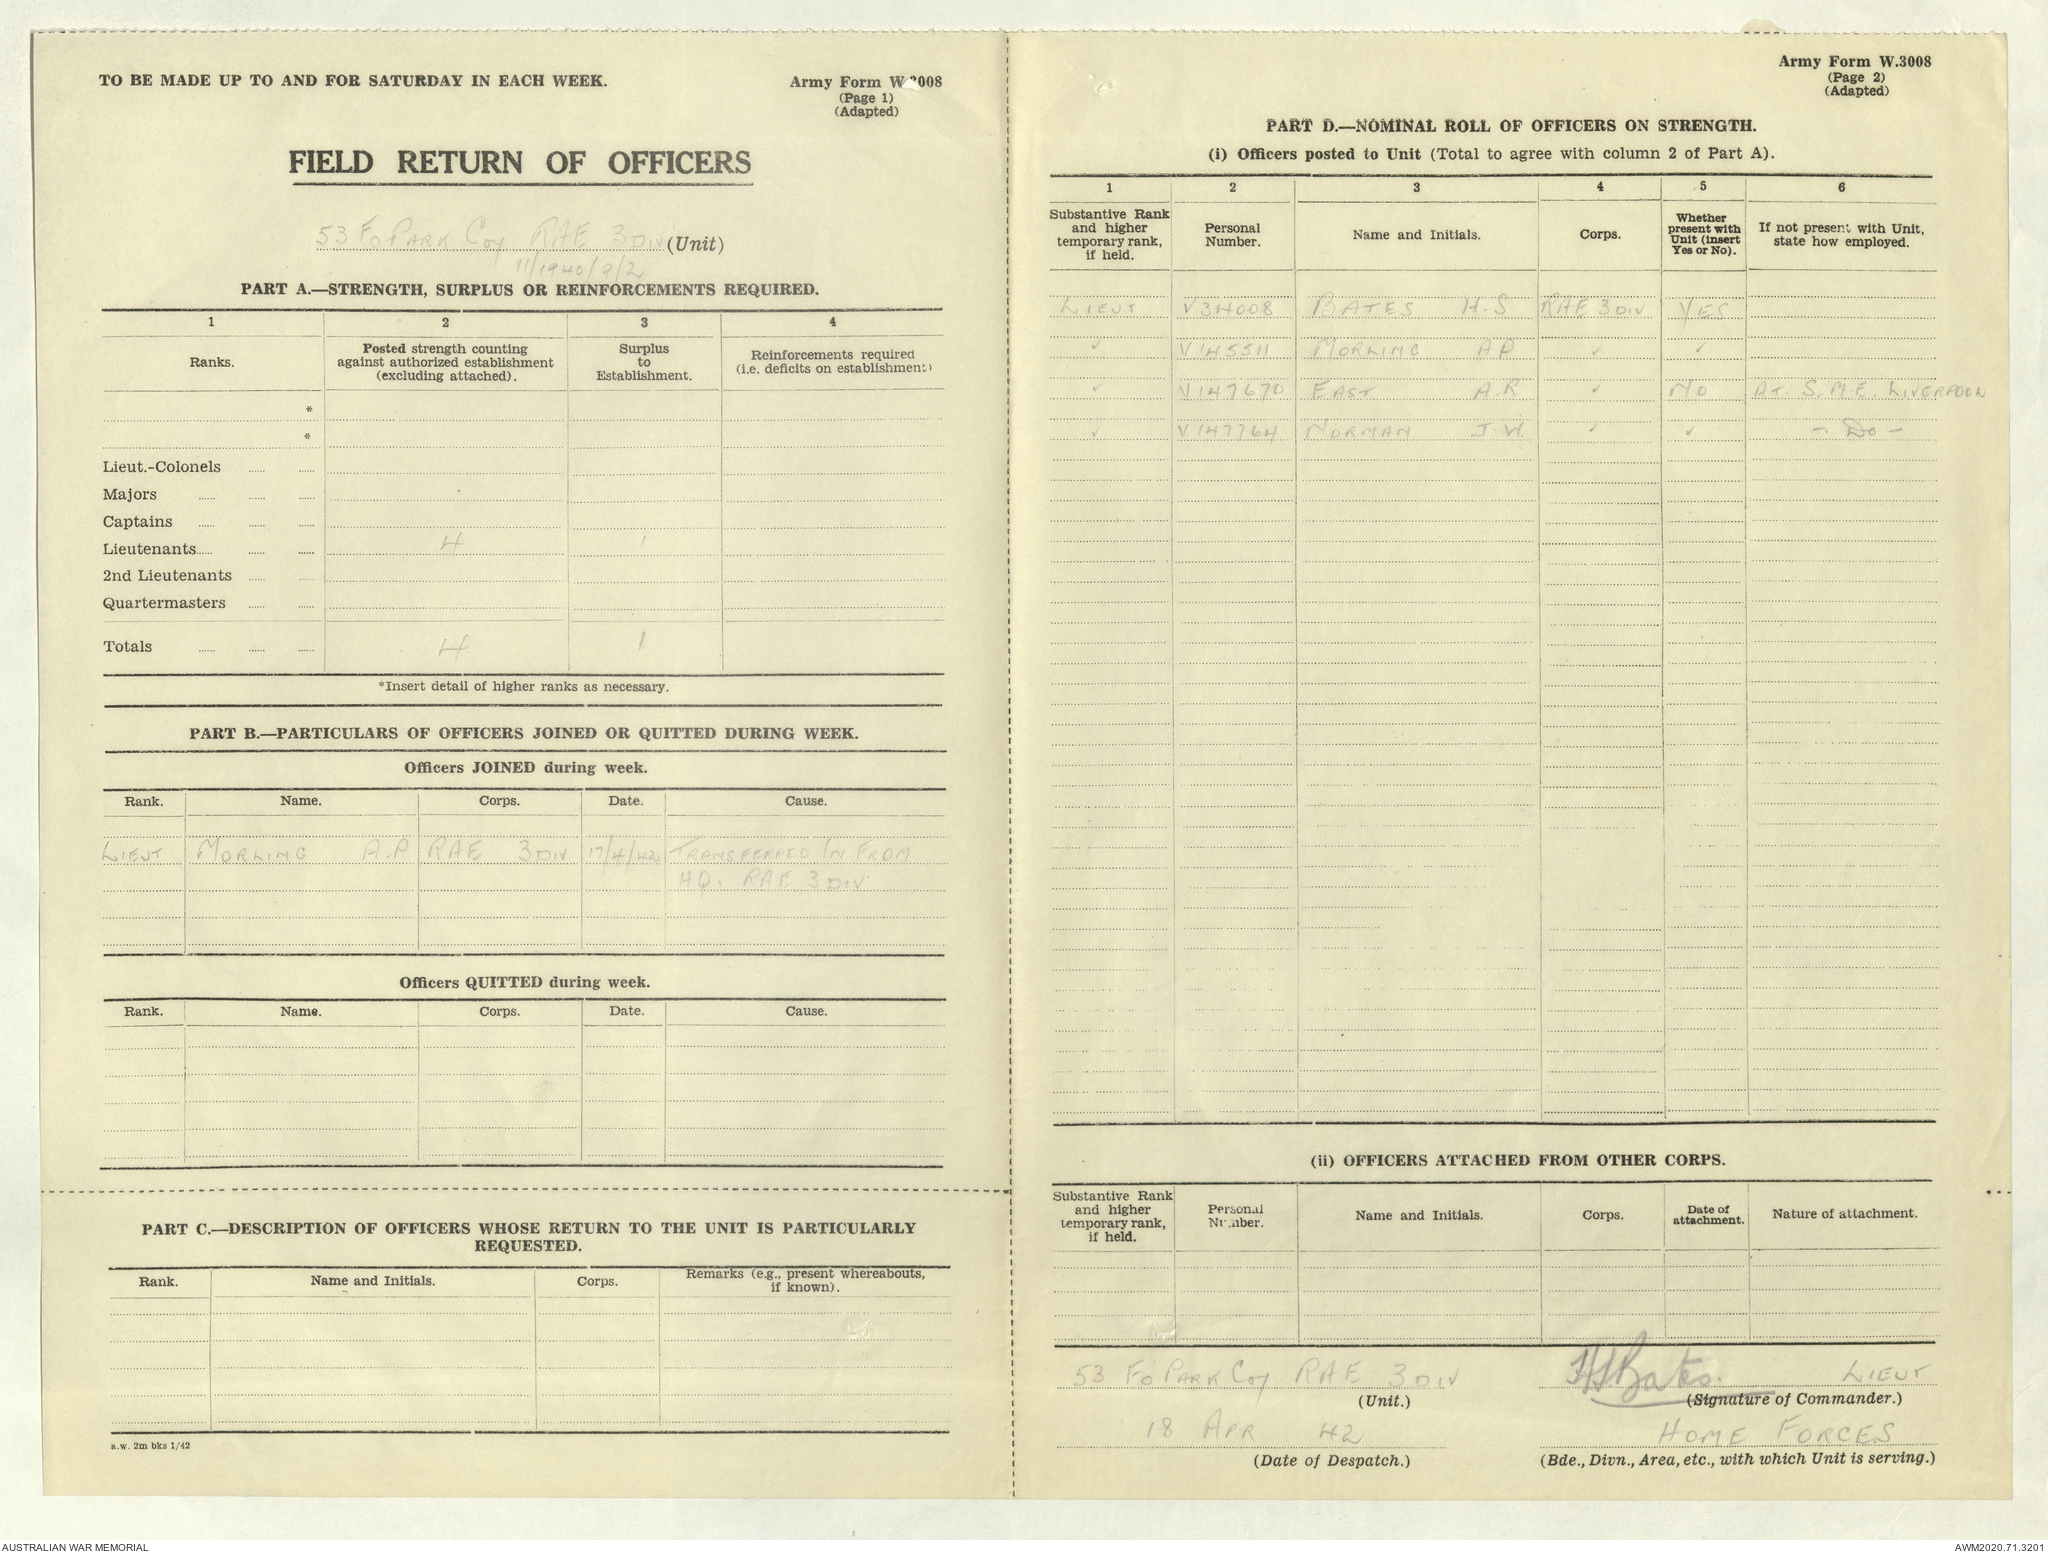 TO BE MADE UP TO AND FOR SATURDAY IN EACH WEEK.
Army Form W.3008
(Page 1)
(Adapted)
FIELD RETURN OF OFFICERS
53 Fd PARK Coy RAE 3 DIV (Unit)
11/1940/9/2
PART A.—STRENGTH, SURPLUS OR REINFORCEMENTS REQUIRED.
1 2 3 4
Ranks. Posted strength counting against authorized establishment (excluding attached). Surplus to Establishment. Reinforcements required (i.e. deficits on establishment)
*
*
Lieut.-Colonels
Majors
Captains
Lieutenants 4 1
2nd Lieutenants
Quartermasters
Totals 4 1
*Insert detail of higher ranks as necessary.
PART B.—PARTICULARS OF OFFICERS JOINED OR QUITTED DURING WEEK.
Officers JOINED during week.
Rank. Name. Corps. Date. Cause.
LIEUT MORLING A.P RAE 3 DIV 17/4/42 TRANSFERRED IN FROM
HQ. RAE 3 DIV
Officers QUITTED during week.
Rank. Name. Corps. Date. Cause.
PART C.—DESCRIPTION OF OFFICERS WHOSE RETURN TO THE UNIT IS PARTICULARLY
REQUESTED.
Rank. Name and Initials. Corps. Remarks (e.g., present whereabouts, if known).
a.w. 2m bks 1/42
Army Form W.3008
(Page 2)
(Adapted)
PART D.—NOMINAL ROLL OF OFFICERS ON STRENGTH.
(i) Officers posted to Unit (Total to agree with column 2 of Part A).
1 2 3 4 5 6
Substantive Rank and higher temporary rank, if held. Personal Number. Name and Initials. Corps. Whether present with Unit (insert Yes or No). If not present with Unit, state how employed.
LIEUT V34008 BATES H-S RAE 3 DIV YES
✓ V145511 MORLING A P ✓ ✓
✓ V147670 EAST A.R ✓ NO AT. S.M.E. LIVERPOOL
✓ V147764 NORMAN J.W. ✓ ✓ - Do -
(ii) OFFICERS ATTACHED FROM OTHER CORPS.
Substantive Rank and higher temporary rank, if held. Personal Number. Name and Initials. Corps. Date of attachment. Nature of attachment.
53 Fd PARK Coy RAE 3 DIV HSBates. LIEUT
(Unit.) (Signature of Commander.)
18 APR 42 HOME FORCES
(Date of Despatch.) (Bde., Divn., Area, etc., with which Unit is serving.)
AUSTRALIAN WAR MEMORIAL AWM2020.71.3201